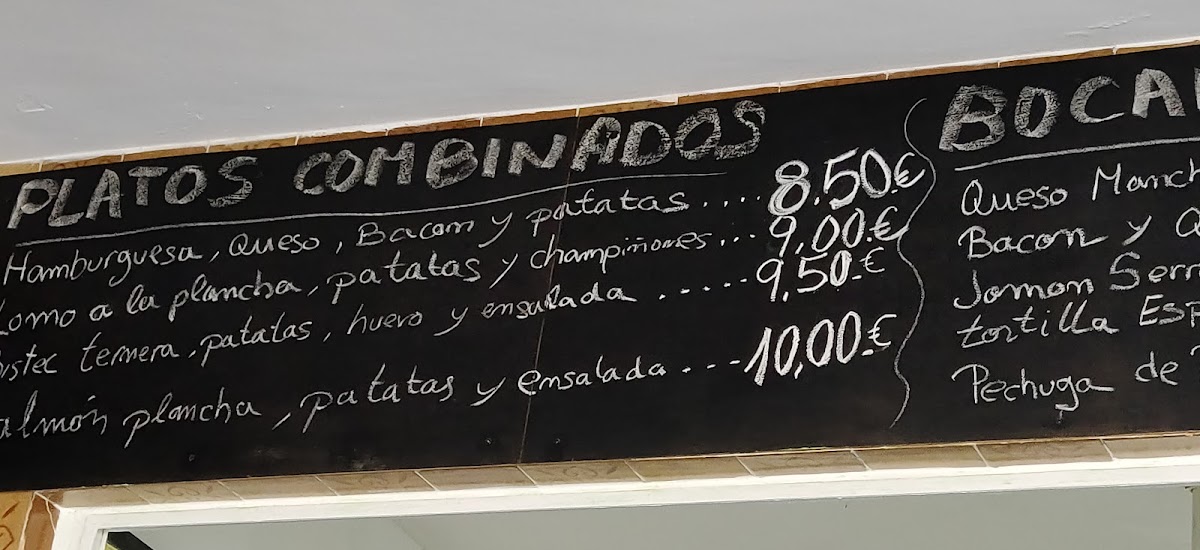 PLATOS COMBINADOS
Hamburguesa, Queso, Bacom y patatas .... 8,50.€
Lomo a la plancha, patatas y champiñones ... 9,00.€
Bistec ternera, patatas, huevo y ensalada ..... 9,50.€
almón plancha, patatas y ensalada ... 10,00.€
BOCA
Queso Manch
Bacon y
Jamon Serr
tortilla Esp
Pechuga de